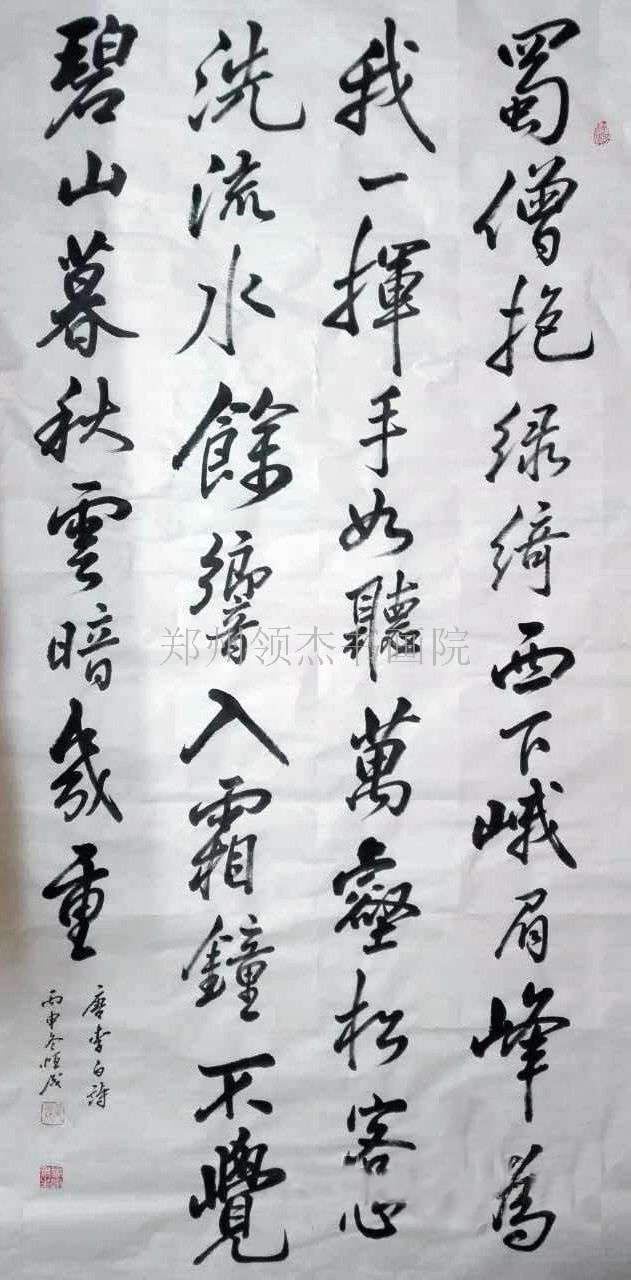 蜀僧抱绿绮西下峨眉峰為
我一揮手如聽萬壑松客心
洗流水餘響入霜鐘不覺
碧山暮秋雲暗幾重
唐李白詩
丙申冬恒成
郑州领杰书画院